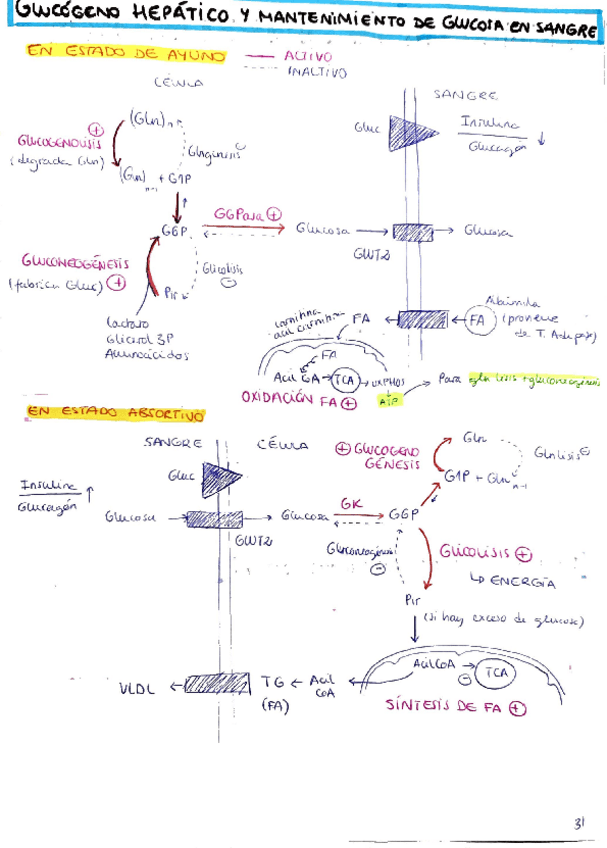 GLUCÓGENO HEPÁTICO Y MANTENIMIENTO DE GLUCOSA EN SANGRE
EN ESTADO DE AYUNO
ACTIVO
INACTIVO
CÉLULA
SANGRE
(Gln)n
Gluc
Insulina
Glucagón ↓
+
GLUCOGENOLISIS
(degrada Gln)
Glngénesis
(Gln)n-1 + G1P
G6P
G6Pasa +
Glucosa
Glucosa
GLUT2
GLUCONEOGÉNESIS
(fabrican Gluc) +
Glicolisis
-
Pir
Lactato
Glicerol 3P
Aminoácidos
carnitina
acil carnitina
FA
FA
Albúmina
(proviene
de T. Adiposo)
FA
Acil CoA → TCA → OXPHOS
ATP
Para gln lisis + gluconeogénesis
OXIDACIÓN FA +
EN ESTADO ABSORTIVO
SANGRE
CÉLULA
Insulina
Glucagón ↑
Gluc
+ GLUCOGENO
GÉNESIS
Gln
Glnlisis -
G1P + Gln n-1
Glucosa
Glucosa
GK
G6P
GLUT2
Gluconeogénesis
-
GLICOLISIS +
↳ ENERGÍA
Pir
(si hay exceso de glucosa)
AcilCoA → TCA
-
VLDL ←
TG ← Acil
CoA
(FA)
SÍNTESIS DE FA +
31